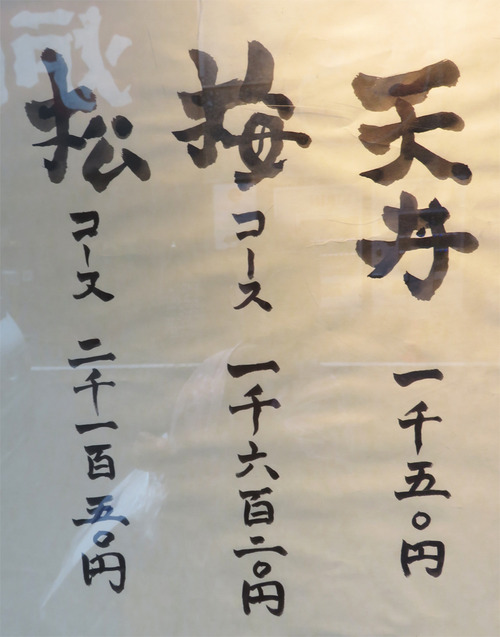 天丼 一千五〇円
梅コース 一千六百二〇円
松コース 二千一百五〇円